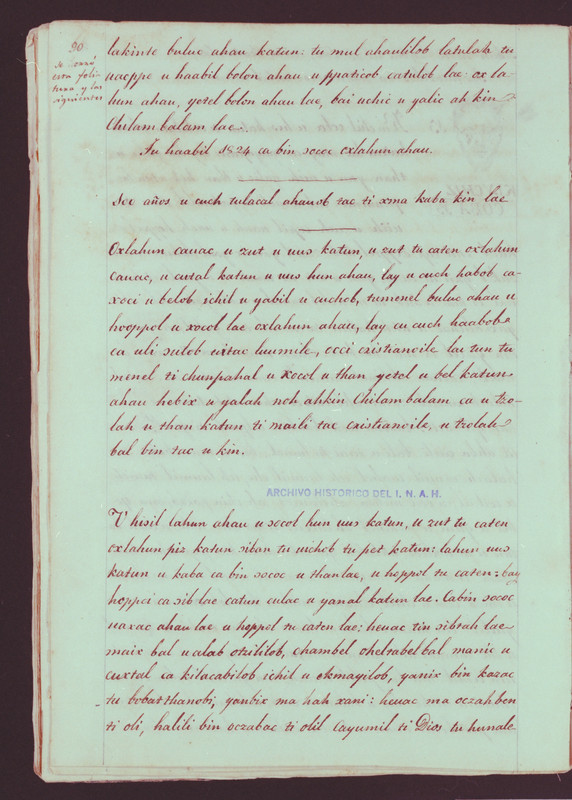 90.
se erró
esta foli-
tura y las
siguientes
lakinte buluc ahau katun: tu mul ahaulilob latulah tu
uaeppe u haabil bolon ahau u ppaticob catulob lae: ox la-
hun ahau, yetel bolon ahau lae, bai uchic u yalic ah kin
Chilam balam lae.
Tu haabil 1824 ca bin sococ oxlahun ahau.
See años u cuch tulacal ahauob tac ti xma kaba kin lae
Oxlahun cauac u zut u uus katun, u zut tu caten oxlahun
cauac, u cutal katun u uus hun ahau, lay u cuch habob ca-
xoci u belob ichil u yabil u cuchob, tumenel buluc ahau u
hooppol u xocol lae oxlahun ahau, lay cu cuch haabob
ca uli sulob uitac luumile, occi cristianoile lai tun tu
menel ti chunpahal u xocol u than yetel u bel katun
ahau hebix u yalah noh ahkin Chilambalam ca u tzo-
lah u than katun ti maili tac cristianoile, u tzolah
bal bin tac u kin.
ARCHIVO HISTORICO DEL I. N. A. H.
V hisil lahun ahau u socol hun uus katun, u zut tu caten
oxlahun pis katun siban tu uichob tu pet katun: lahun uus
katun u kaba ca bin sococ u thanlae, u hoppol tu caten: bay
hoppci ca sib lae catun culac u yanal katun lae. Cabin sococ
uaxac ahau lae u hoppol tu caten lae; heuac tin sibtah lae
maix bal u alab otzililob, chambel ohelrabel bal manic u
cuxtal ca kilacabilob ichil u ekmayilob, yanix bin kazac
tu bobatthanobi, yanbix ma hah xani: heuac ma oczahben
ti oli, halili bin oczabac ti olil Cayumil ti Dios tu hunale